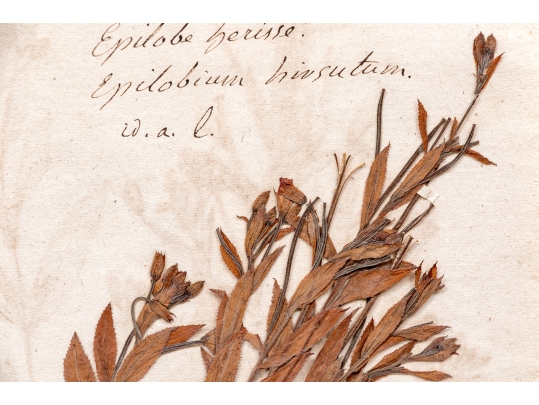 Epilobe herisse.
Epilobium hirsutum.
id. a. L.